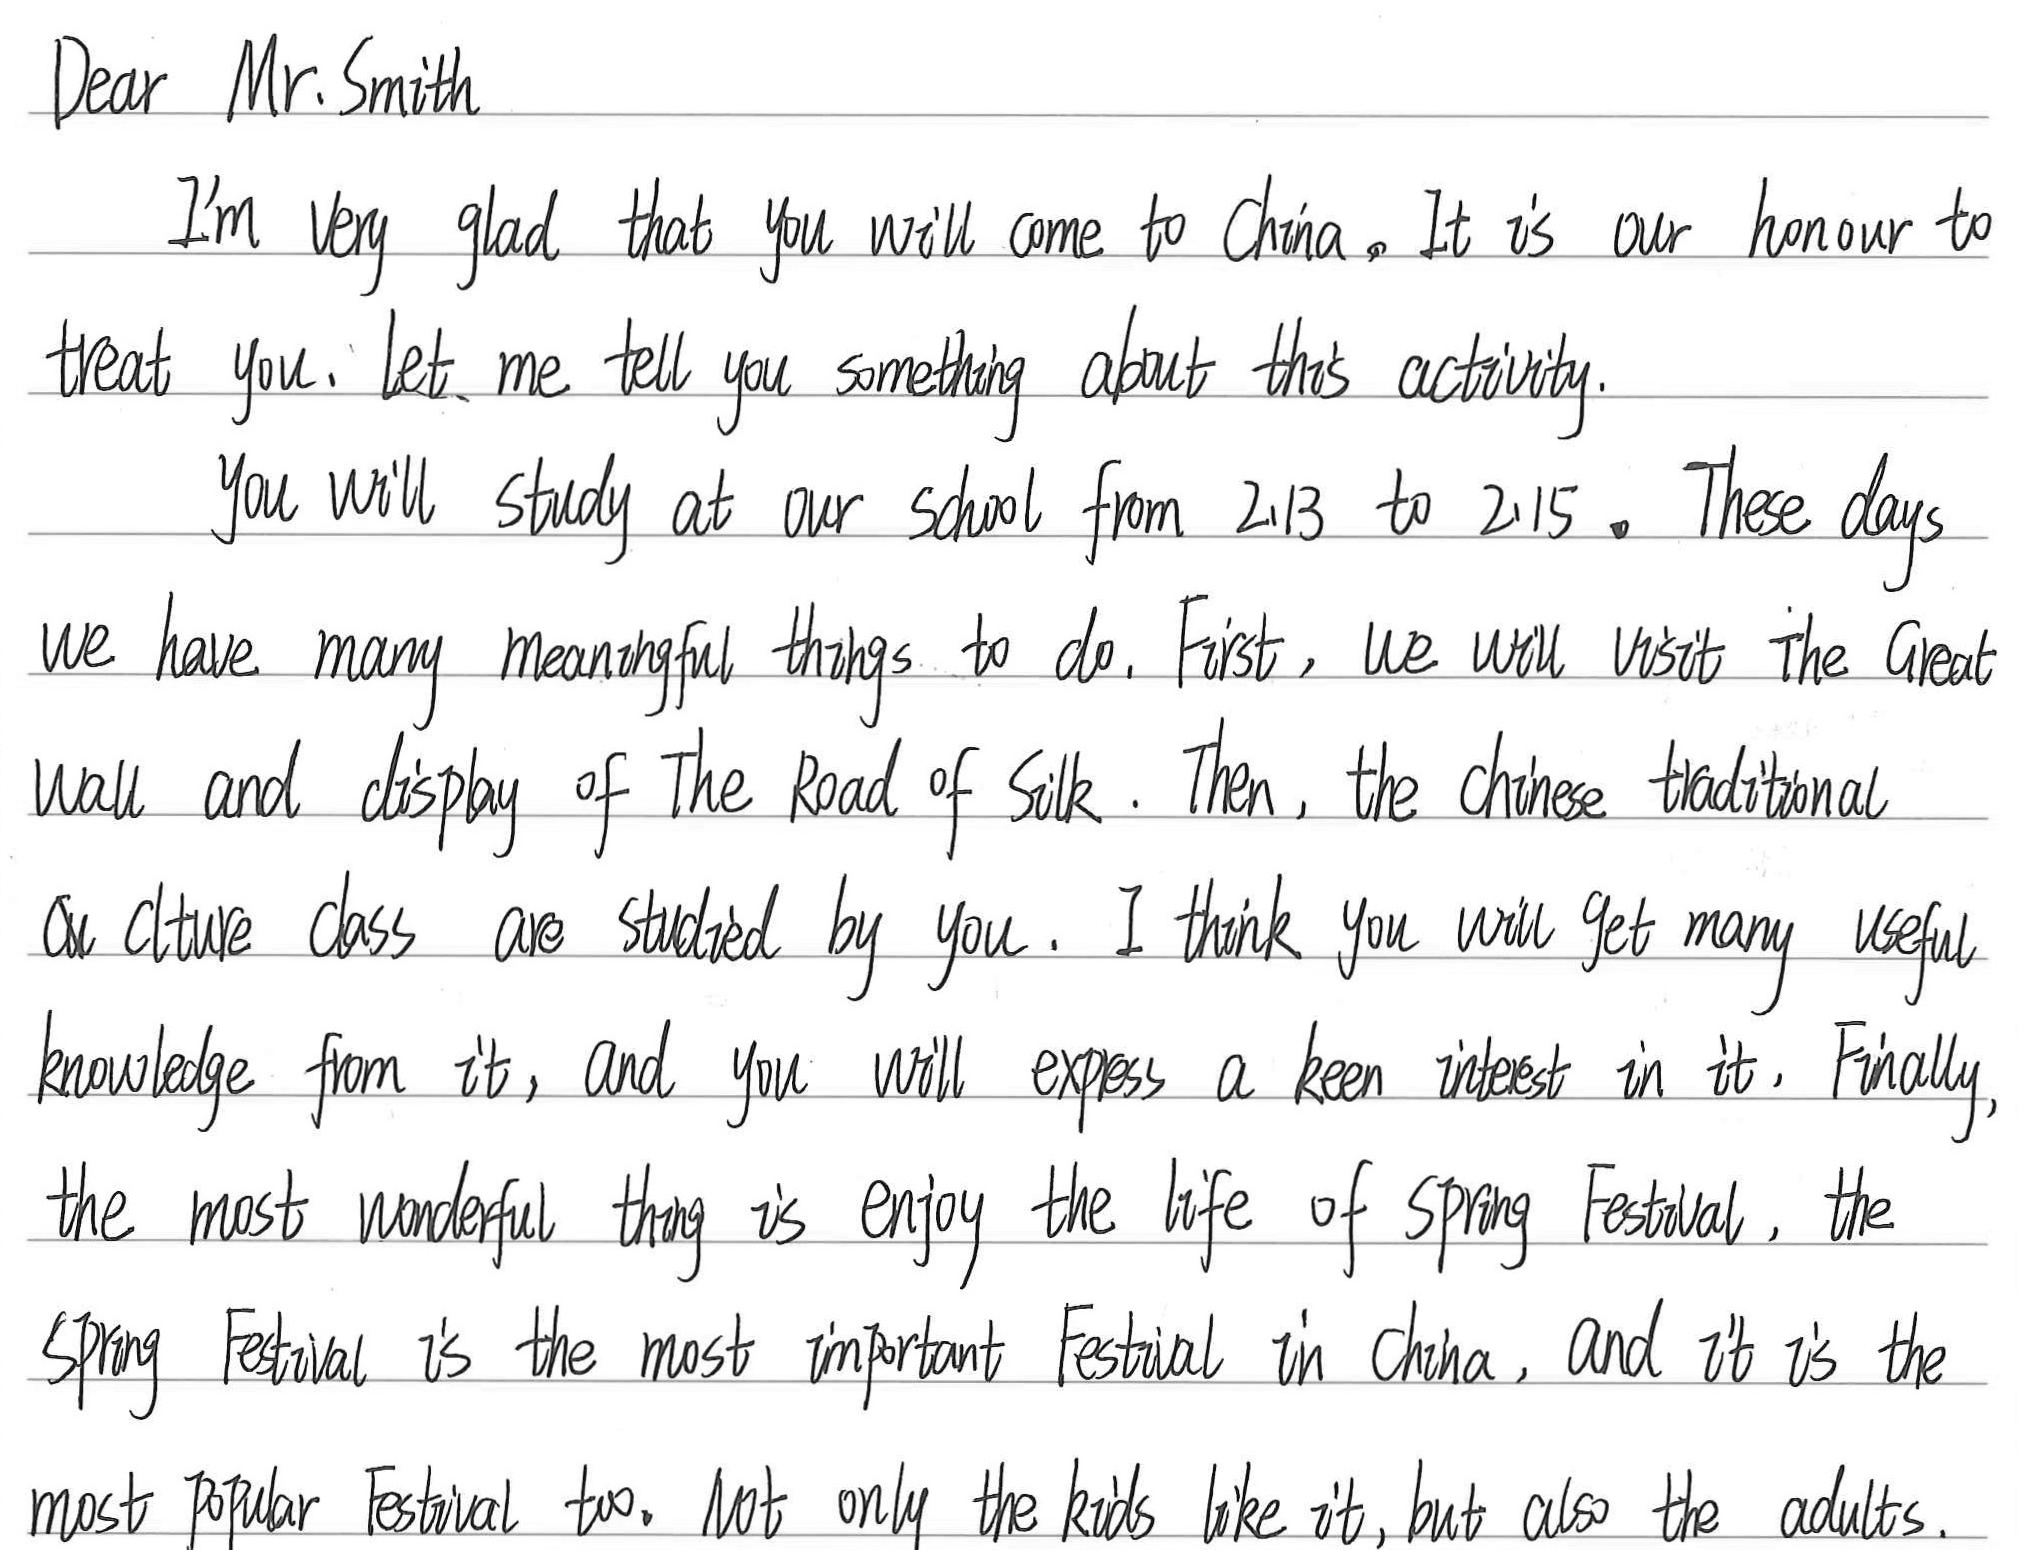 Dear Mr. Smith
I'm very glad that you will come to China. It is our honour to
treat you. Let me tell you something about this activity.
You will study at our school from 2.13 to 2.15. These days
we have many meaningful things to do. First, we will visit The Great
Wall and display of The Road of Silk. Then, the chinese traditional
clture class are studied by you. I think you will get many useful
knowledge from it, and you will express a keen interest in it. Finally,
the most wonderful thing is enjoy the life of Spring Festival, the
Spring Festival is the most important Festival in China, and it is the
most popular Festival too. Not only the kids like it, but also the adults.